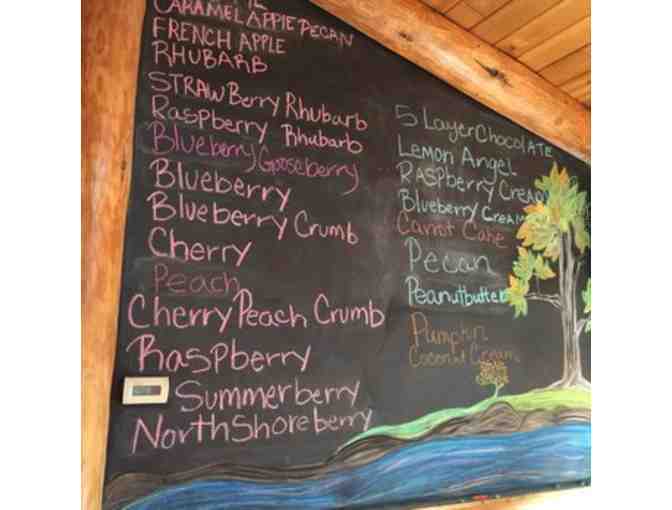 CARAMEL APPLE PECAN
FRENCH APPLE
RHUBARB
STRAWBerry Rhubarb
Raspberry Rhubarb
Blueberry Gooseberry
Blueberry
Blueberry Crumb
Cherry
Peach
Cherry Peach Crumb
Raspberry
Summerberry
NorthShoreberry
5 Layer ChocolATE
Lemon Angel
RASpberry Cream
Blueberry Cream
Carrot Cake
Pecan
Peanutbutter
Pumpkin
Coconut Cream